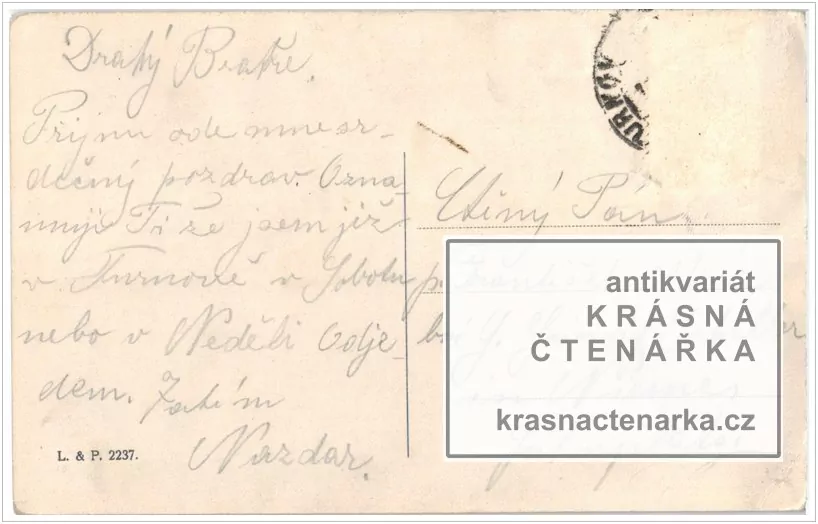 Drahý Bratře.
Přijmi ode mne sr-
dečný pozdrav. Ozna-
muji Ti že jsem již
v Turnově v Sobotu
nebo v Neděli Odje-
dem. Zatím
Nazdar.
L. & P. 2237.
URNOV
Ctěný Pán
p.
antikvariát
KRÁSNÁ
ČTENÁŘKA
krasnactenarka.cz